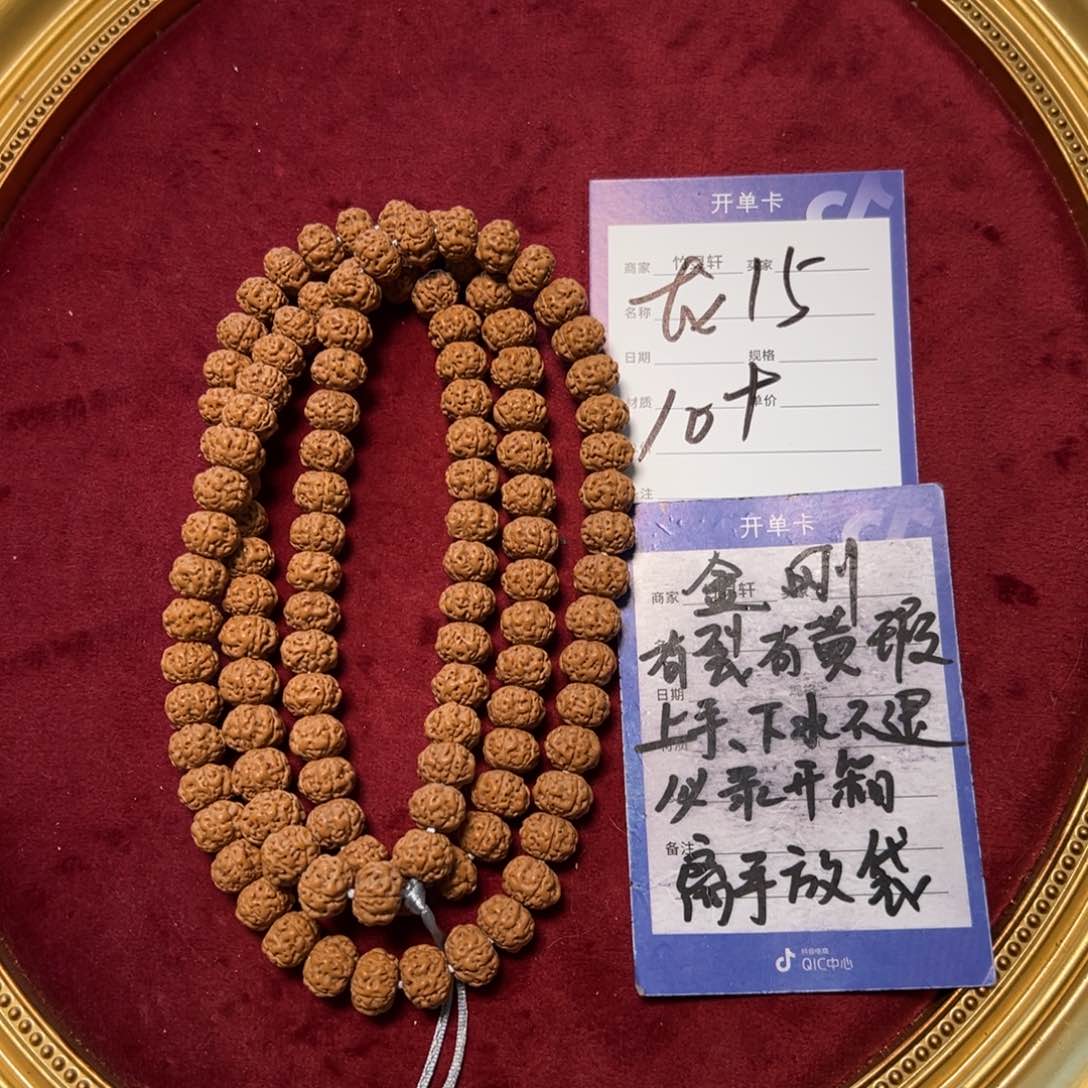 开单卡
商家 竹 轩 买家
龙15
名称
日期 规格
材质 单价
10+
备注
开单卡
商家 轩
金刚
有裂有黄瑕
日期
上手、下水不退
材质
必录开箱
备注
离手放袋
抖音电商
QIC中心